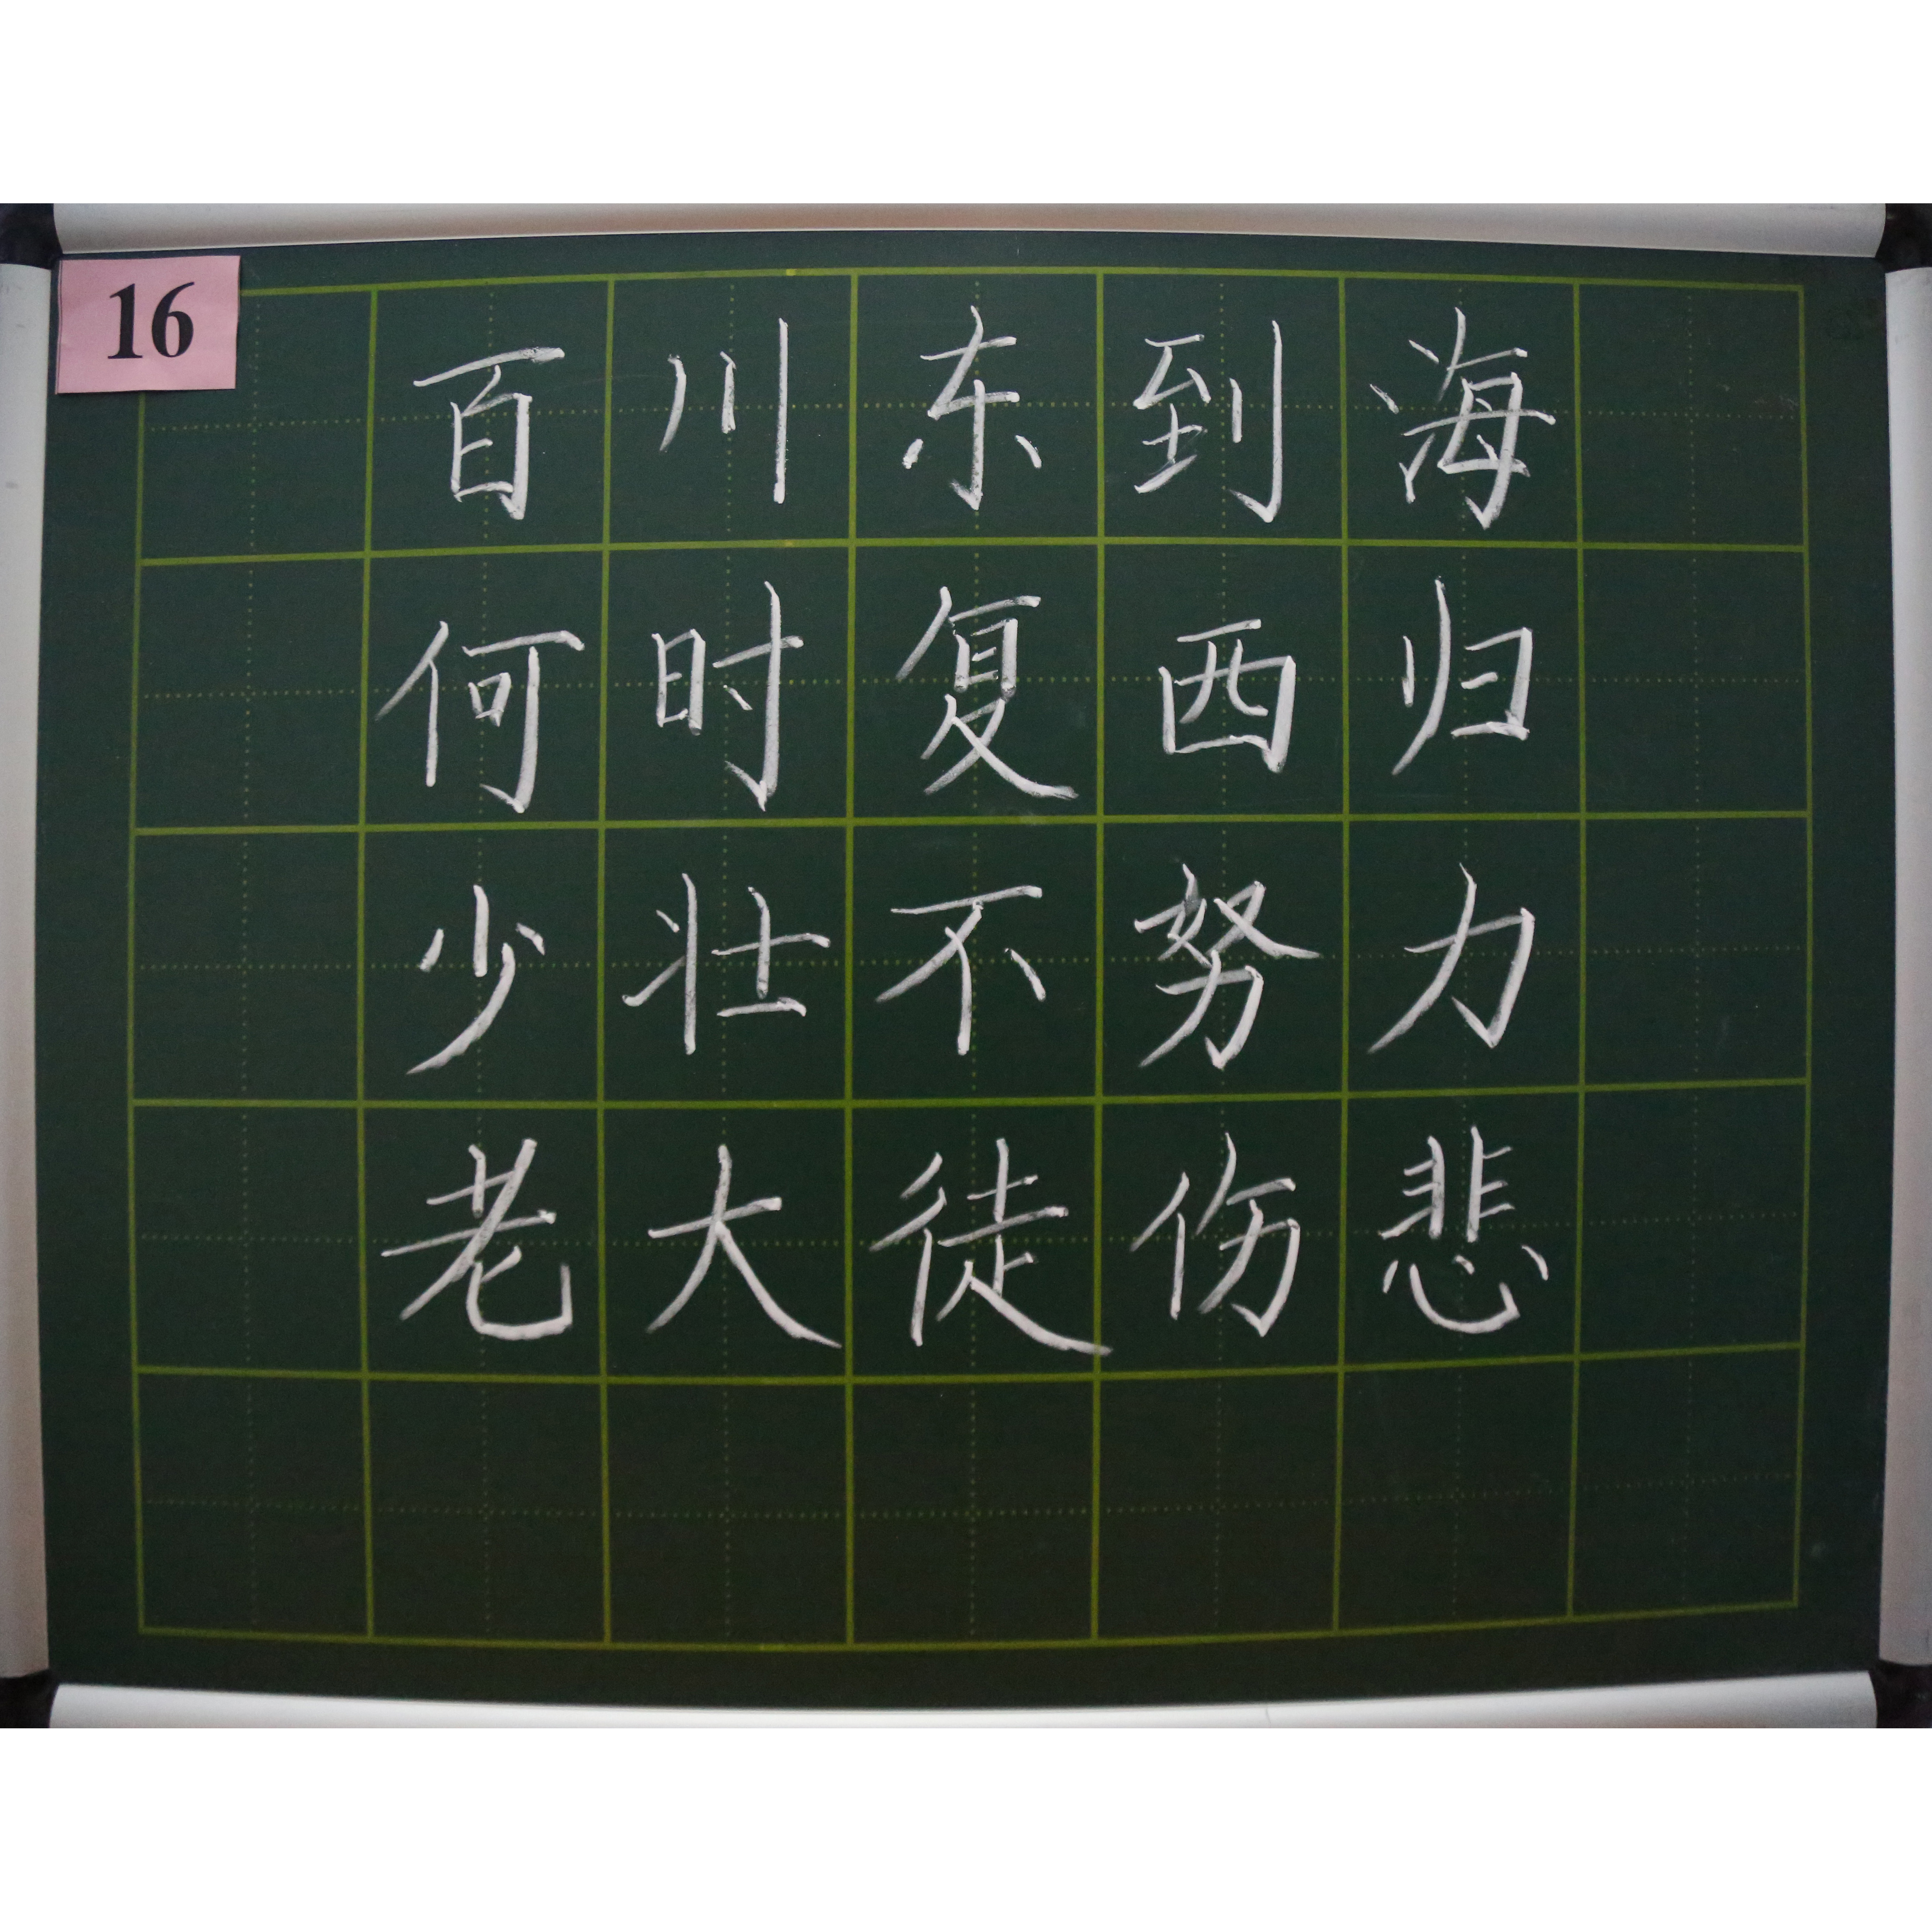 16
百川东到海
何时复西归
少壮不努力
老大徒伤悲